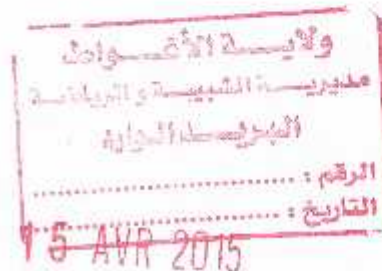 ولايــــة الأغــــواط
مديريــــة الشبيبــة والرياضــة
البريــــد الوارد
الرقم : ........................
التاريخ : ........................
15 AVR 2015